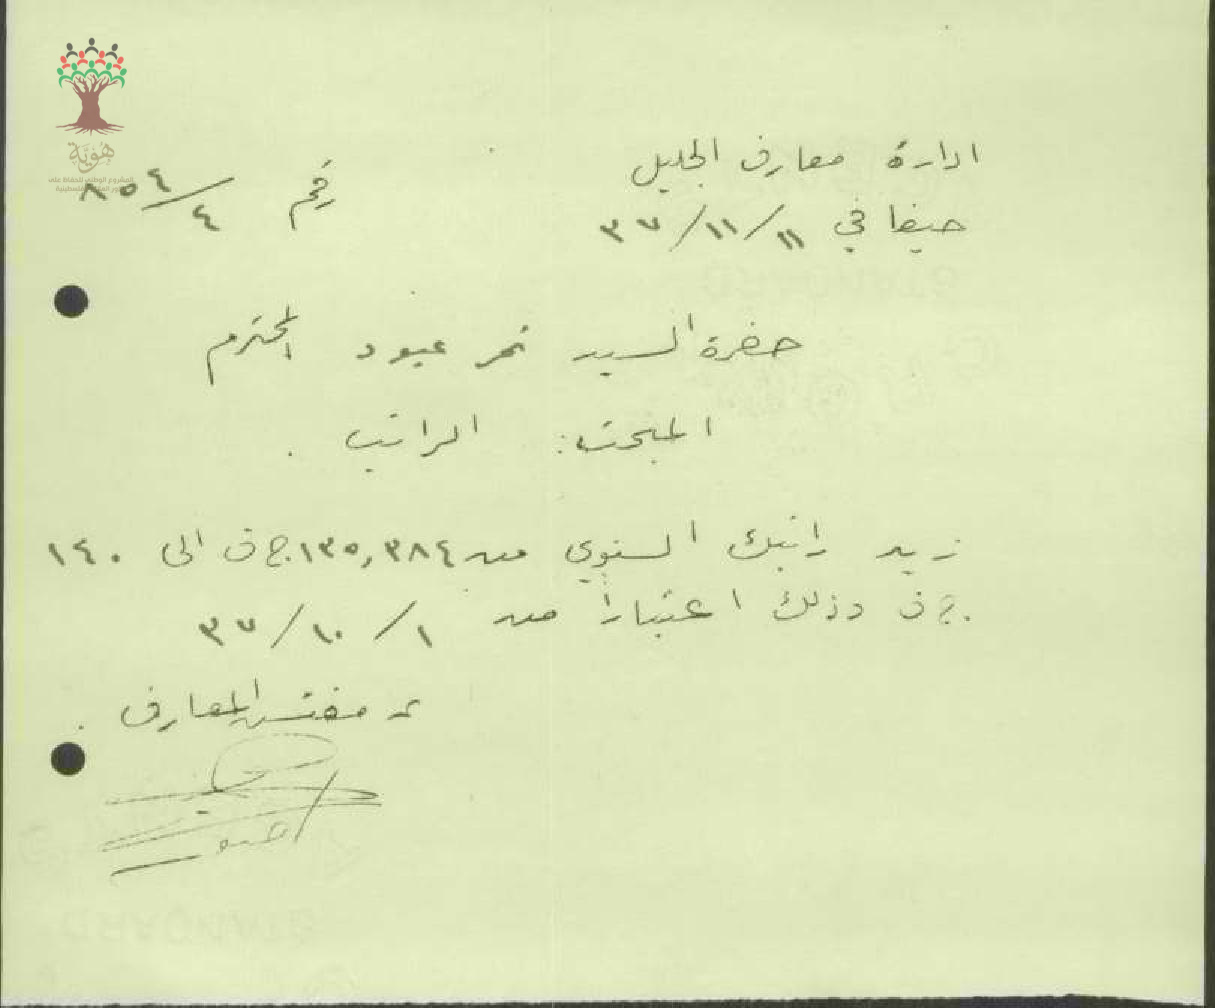 ادارة معارف الجليل
رقم ٤/٨٥٤
حيفا في ١١/١١/٣٧
حضرة السيد نمر عبود المحترم
المبحث: الراتب .
زيد راتبك السنوي من ١٣٥,٣٨٤ ج ف الى ١٤٠
ج ف وذلك اعتباراً من ١/١٠/٣٧
عن مفتش المعارف .
هوية
المشروع الوطني للحفاظ على